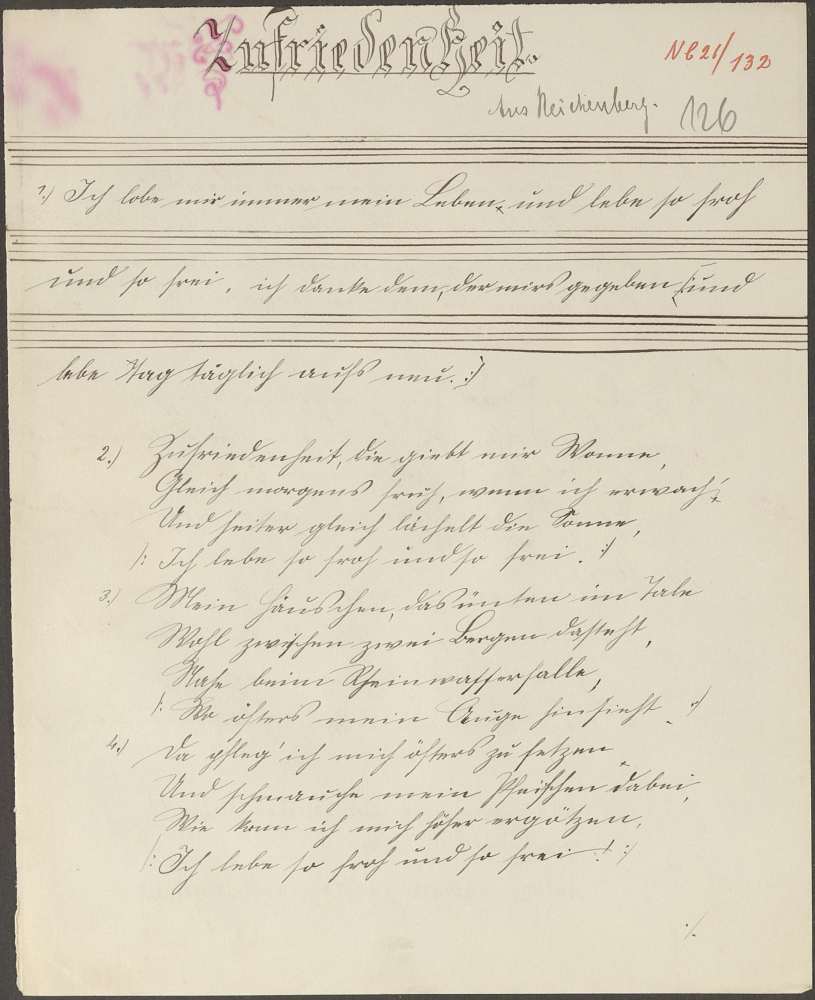 Zufriedenheit.
NC 21/132
Aus Reichenberg. 126
1.) Ich lobe mir immer mein Leben, und lebe so froh
und so frei, ich danke dem, der mirs gegeben /: und
lebe Tag täglich aufs neu. :/
2.) Zufriedenheit, die giebt mir Wonne,
Gleich morgens früh, wenn ich erwach',
Und heiter gleich lächelt die Sonne,
/: Ich lebe so froh und so frei. :/
3.) Mein Häuschen, das unten im Tale
Wohl zwischen zwei Bergen dasteht,
Nahe beim Rheinwasserfalle,
/: Wo öfters mein Auge hinsieht. :/
4.) Da pfleg' ich mich öfters zu setzen
Und schmauche mein Pfeifchen dabei,
Wie kann ich mich höher ergötzen,
/: Ich lebe so froh und so frei! :/
./.